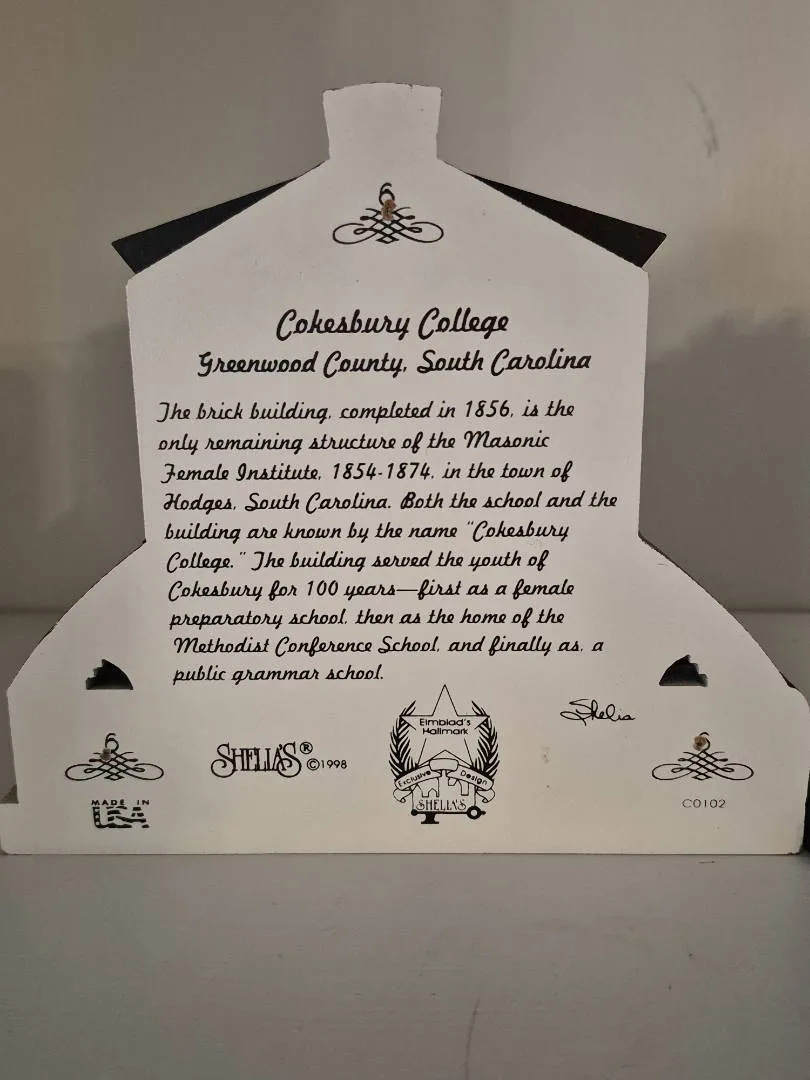 Cokesbury College
Greenwood County, South Carolina
The brick building, completed in 1856, is the
only remaining structure of the Masonic
Female Institute, 1854-1874, in the town of
Hodges, South Carolina. Both the school and the
building are known by the name "Cokesbury
College." The building served the youth of
Cokesbury for 100 years—first as a female
preparatory school, then as the home of the
Methodist Conference School, and finally as, a
public grammar school.
Shelia
Elmblad's
Hallmark
Exclusive Design
SHELIA'S
SHELIA'S® ©1998
MADE IN
USA
C0102